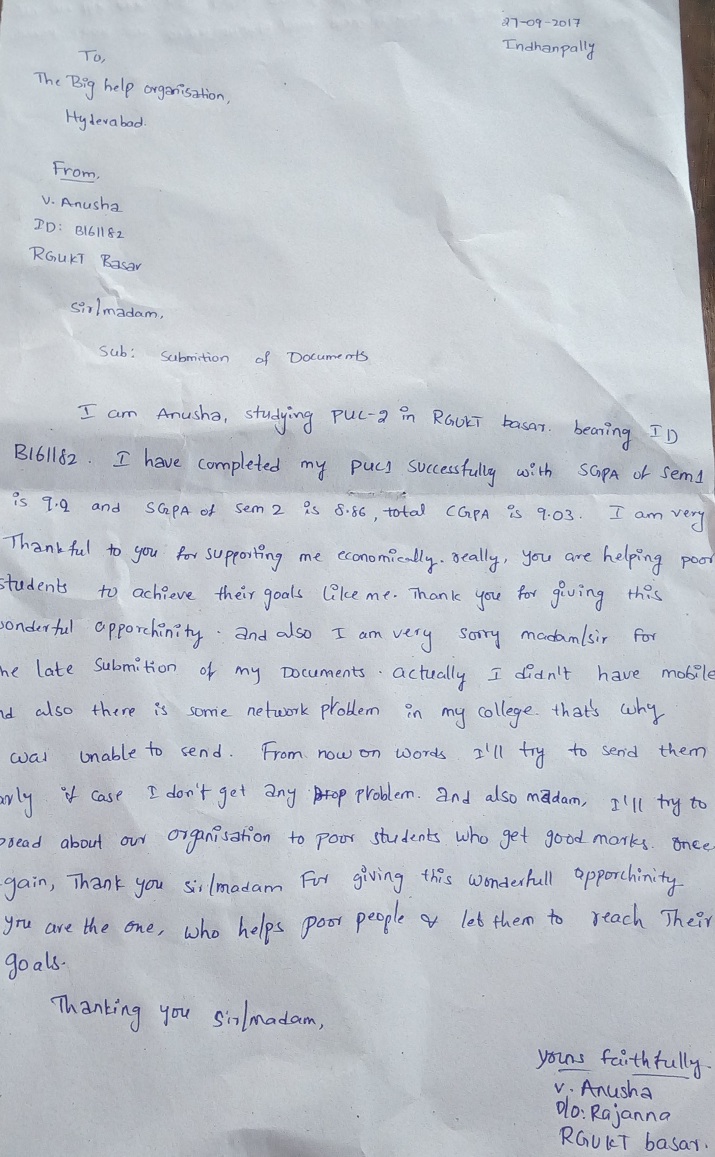 27-09-2017
Indhanpally
To,
The Big help organisation,
Hyderabad.
From,
V. Anusha
ID: B161182
RGUKT Basar
Sir/madam,
Sub: Submition of Documents
I am Anusha, studying PUC-2 in RGUKT basar. bearing ID
B161182. I have completed my puc1 successfully with SGPA of Sem1
is 9.2 and SGPA of sem 2 is 8.86, total CGPA is 9.03. I am very
Thankful to you for supporting me economically. really, you are helping poor
students to achieve their goals like me. Thank you for giving this
wonderful opporchinity. and also I am very sorry madam/sir for
he late Submition of my Documents. actually I didn't have mobile
nd also there is some network problem in my college. that's why
was unable to send. From now on words I'll try to send them
arly if case I don't get any problem. and also madam, I'll try to
pread about our organisation to poor students who get good marks. once
gain, Thank you sir/madam For giving this wonderfull opporchinity
you are the one, who helps poor people & let them to reach Their
goals.
Thanking you Sir/madam,
yours faithfully.
V. Anusha
D/o: Rajanna
RGUKT basar.